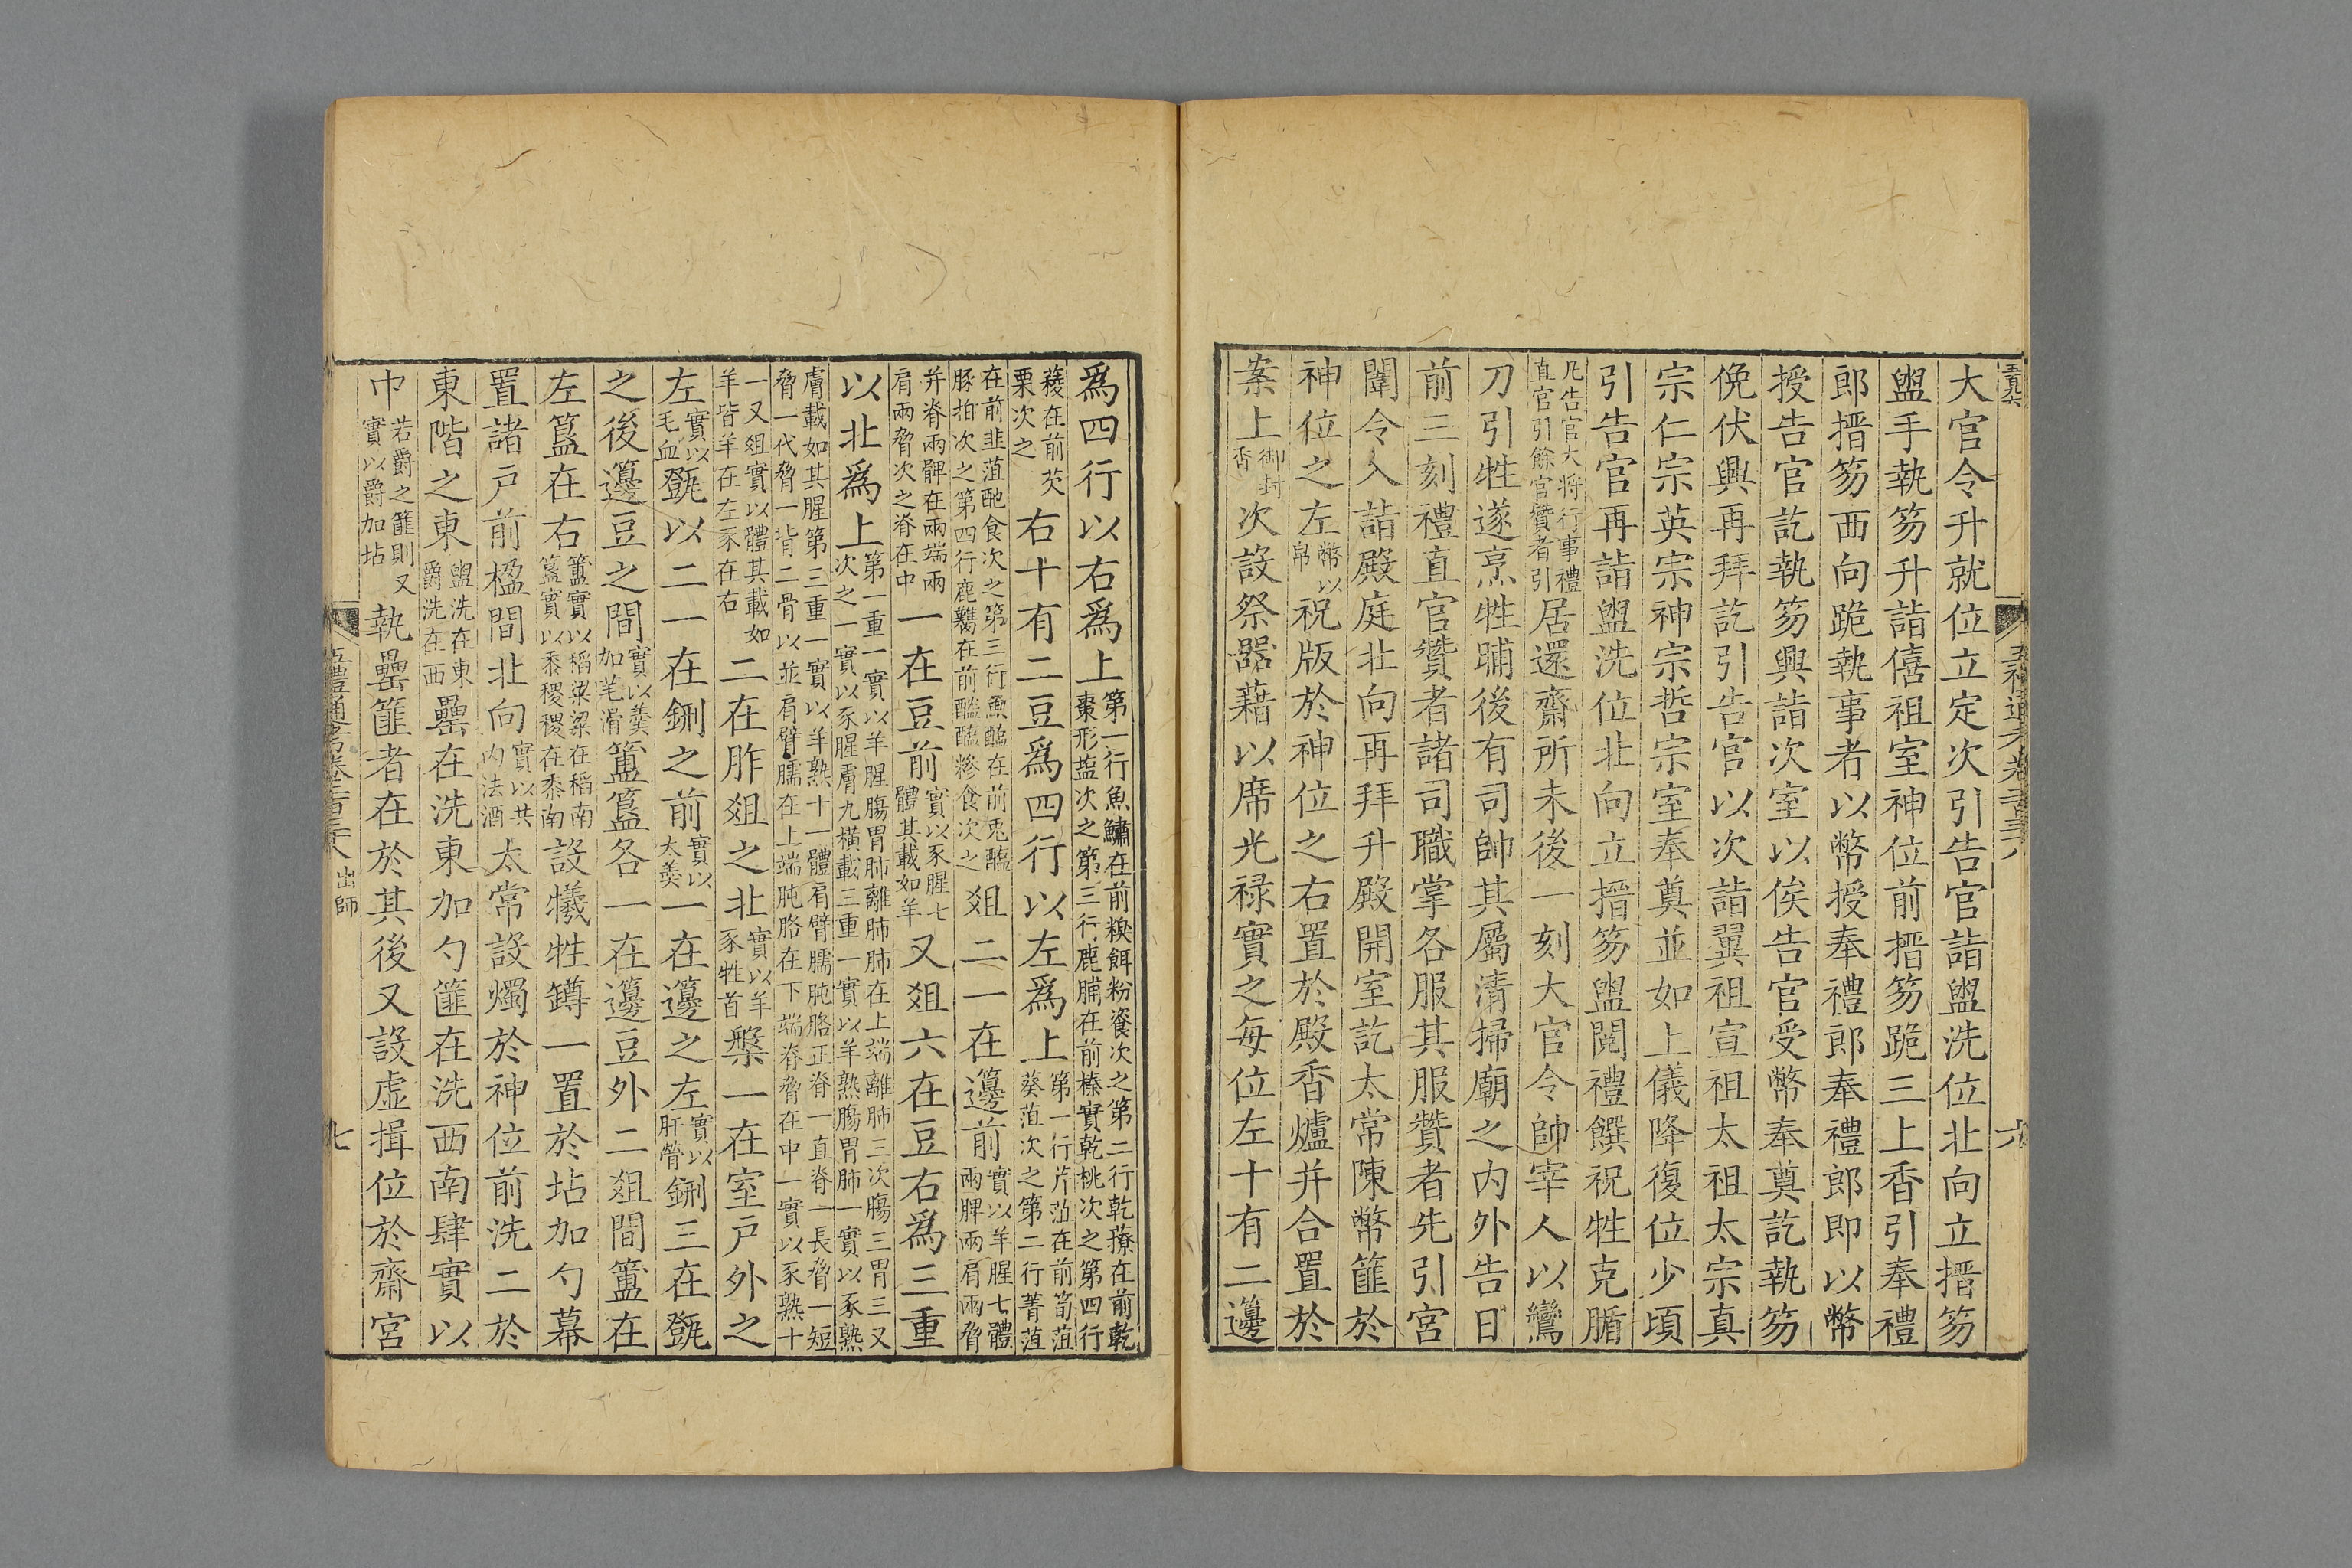 大官令升就位立定次引告官詣盥洗位北向立搢笏
盥手執笏升詣僖祖室神位前搢笏跪三上香引奉禮
郎搢笏西向跪執事者以幣授奉禮郎奉禮郎即以幣
授告官訖執笏興詣次室以俟告官受幣奉奠訖執笏
俛伏興再拜訖引告官以次詣翼祖宣祖太祖太宗真
宗仁宗英宗神宗哲宗室奉奠並如上儀降復位少頃
引告官再詣盥洗位北向立搢笏盥閱禮饌祝牲克腯
凡告官大將行事禮直官引餘官贊者引居還齋所未後一刻大官令帥宰人以鸞
刀引牲遂烹牲晡後有司帥其屬清掃廟之内外告日
前三刻禮直官贊者諸司職掌各服其服贊者先引宮
闈令入詣殿庭北向再拜升殿開室訖太常陳幣篚於
神位之左幣以帛祝版於神位之右置於殿香爐并合置於
案上御封香次設祭器藉以席光禄實之每位左十有二籩
爲四行以右爲上第一行魚鱐在前糗餌粉餈次之第二行乾䕩在前乾棗形盐次之第三行鹿脯在前榛實乾桃次之第四行
蔆在前芡栗次之右十有二豆爲四行以左爲上第一行芹菹在前筍菹葵菹次之第二行菁菹
在前韭菹酏食次之第三行魚醢在前兎醢豚拍次之第四行鹿臡在前醓醢糝食次之俎二一在籩前實以羊腥七體兩髀兩肩兩脅
并脊兩髀在兩端兩肩兩脅次之脊在中一在豆前實以豕腥七體其載如羊又俎六在豆右爲三重
以北爲上第一重一實以羊腥腸胃肺離肺在上端離肺三次腸三胃三又次之一實以豕腥膚九横載三重一實以羊熟腸胃肺一實以豕熟
膚載如其腥第三重一實以羊熟十一體肩臂臑肫胳正脊一直脊一長脅一短脅一代脅一皆二骨以並肩臂臑在上端肫胳在下端脊脅在中一實以豕熟十
一又俎實以體其載如羊皆羊在左豕在右二在胙俎之北實以羊豕牲首槃一在室户外之
左實以毛血㽅以二一在鉶之前實以大羹一在籩之左實以肝膋鉶三在㽅
之後籩豆之間實以羹加芼滑簠簋各一在籩豆外二俎間簠在
左簋在右簠實以稻粱粱在稻南簋實以黍稷稷在黍南設犧牲罇一置於坫加勺幕
置諸户前楹間北向實以共内法酒太常設燭於神位前洗二於
東階之東盥洗在東爵洗在西罍在洗東加勺篚在洗西南肆實以
巾若爵之篚則又實以爵加坫執罍篚者在於其後又設虚揖位於齋宮
出師
七
六